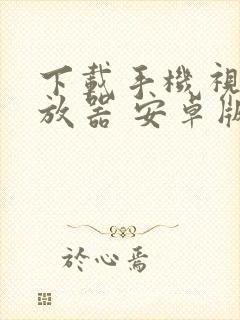 下載手機視
放器 安卓版
於心焉